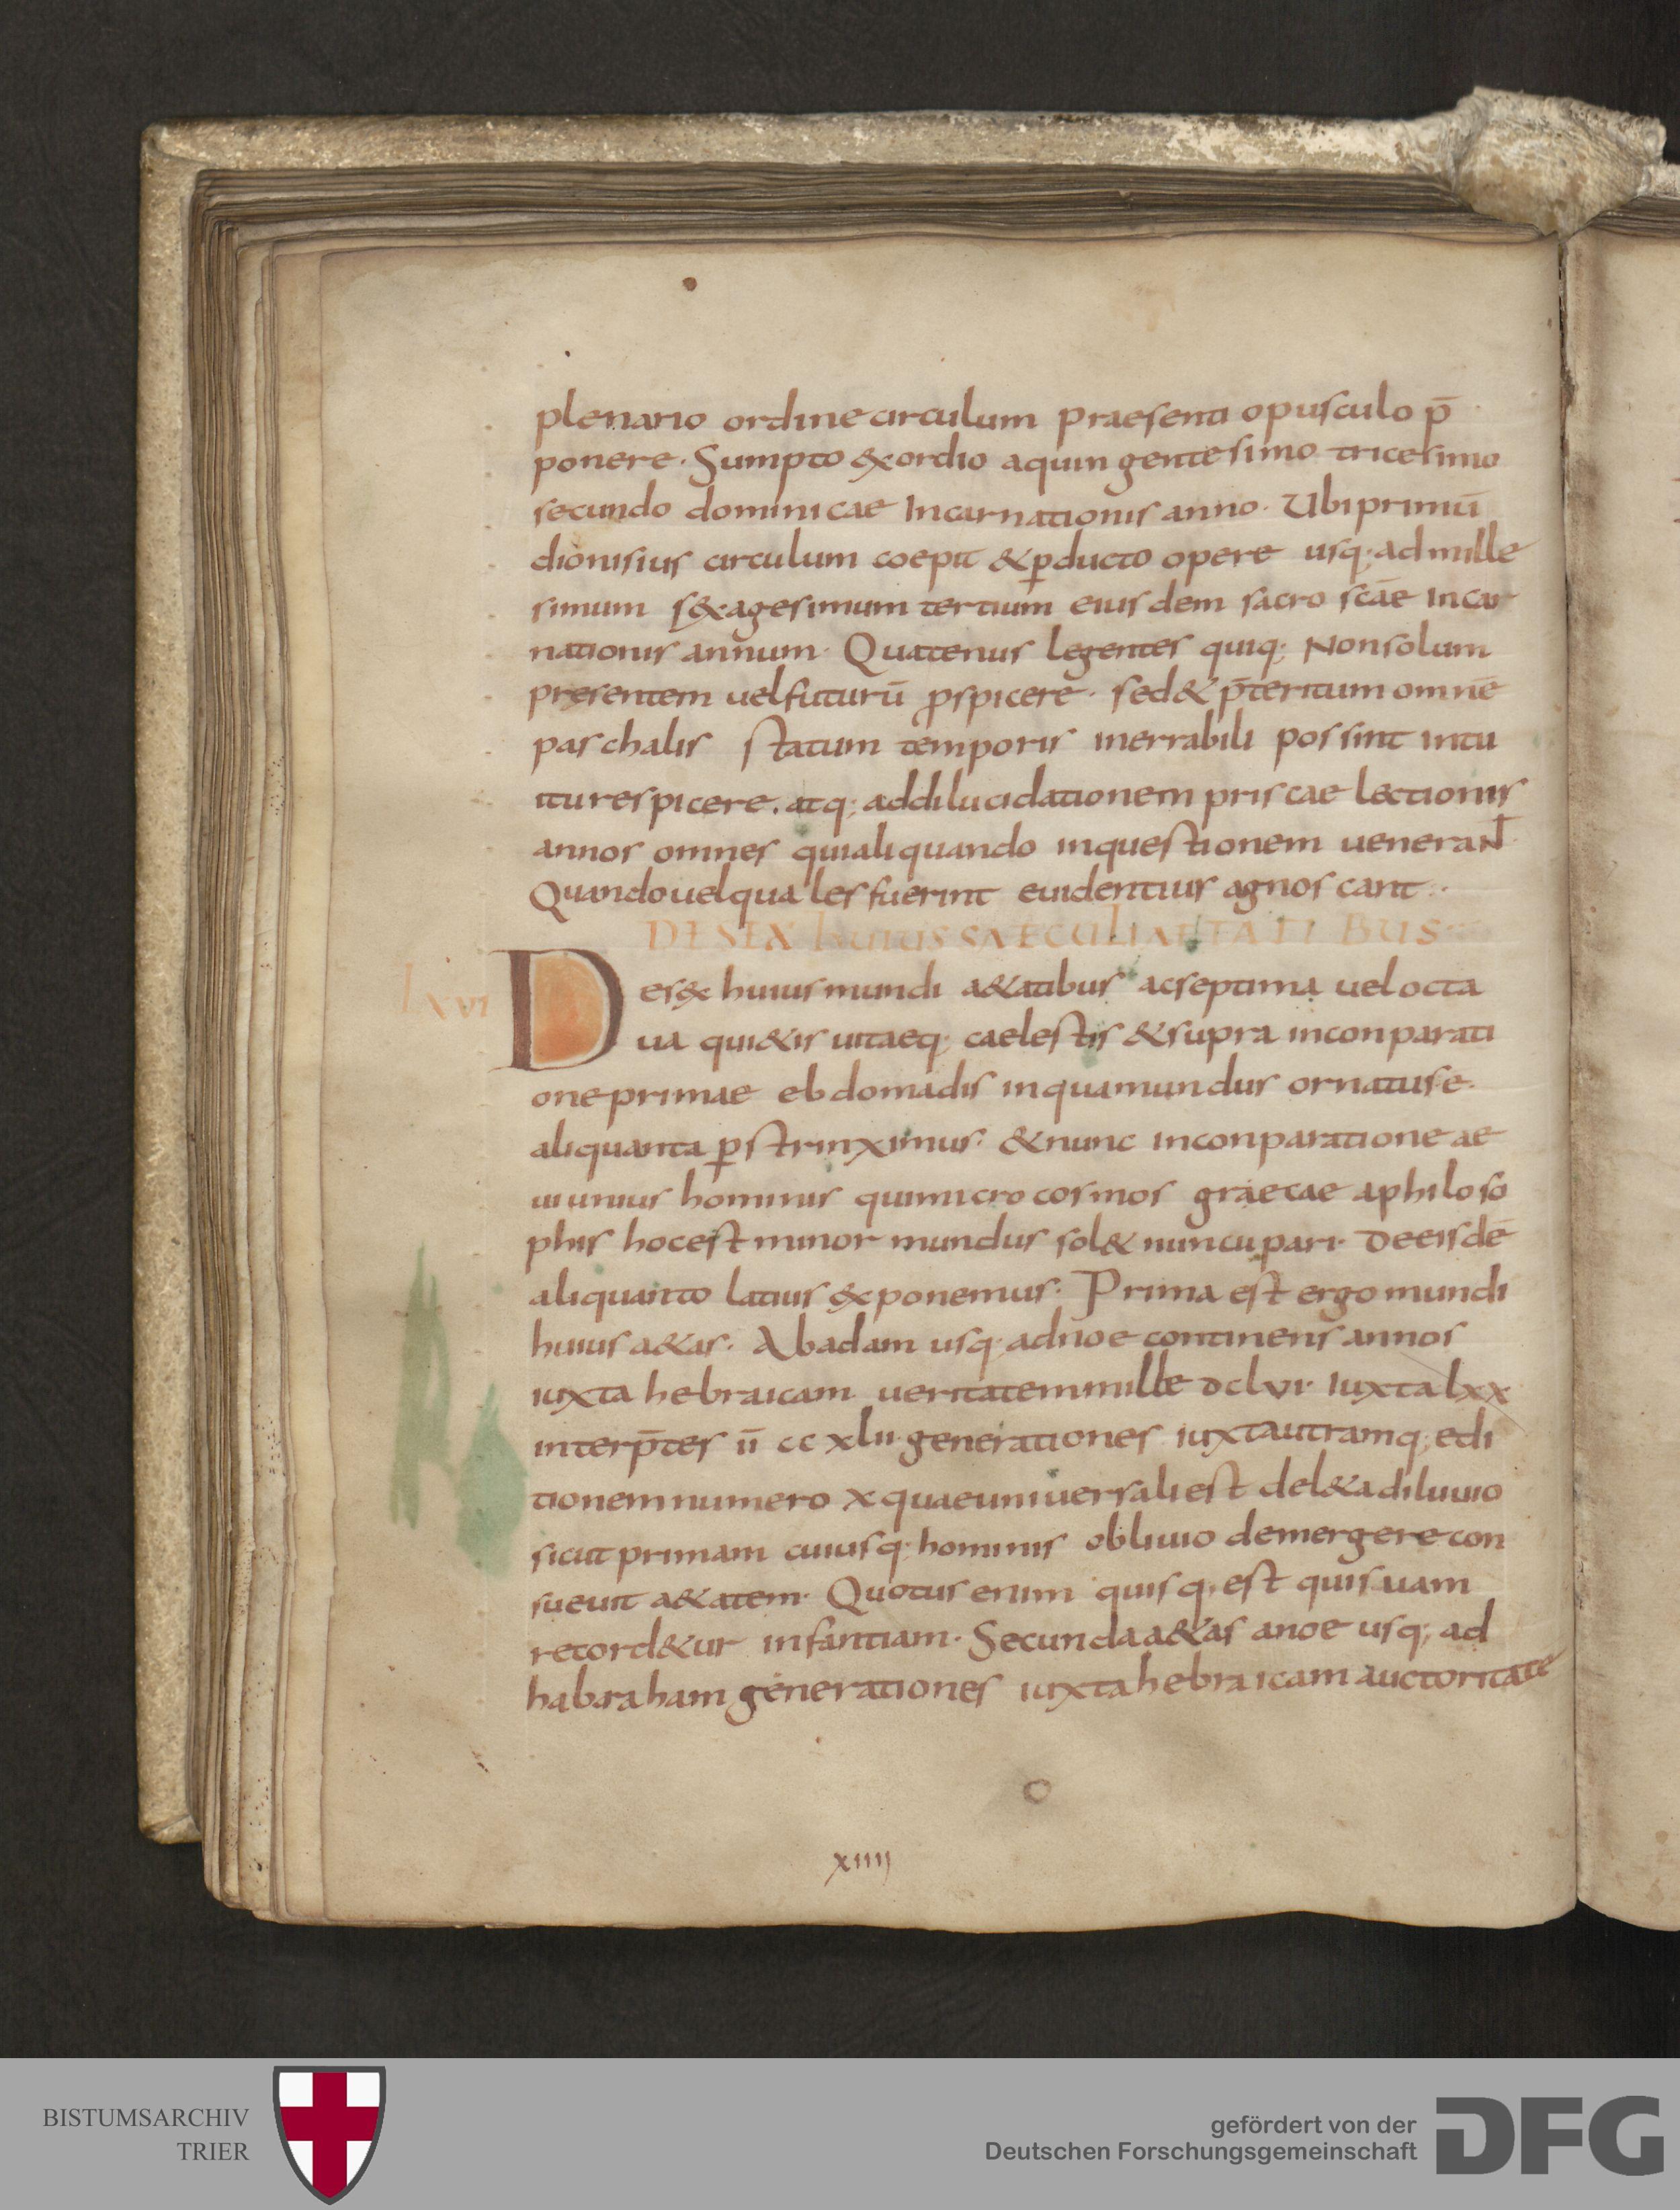 plenario ordine circulum praesenti opusculo p̄
ponere. Sumpto &xordio aquingentesimo tricesimo
secundo dominicae Incarnationis anno. Ubi primū
dionisius circulum coepit & ꝑducto opere usq; ad mille
simum s&xagesimum tertium eiusdem sacro scāe Incar
nationis annum. Quatenus legentes quiq; Non solum
presentem uel futurū ꝓspicere. sed & p̄teritum omnē
paschalis statum temporis inerrabili possint intu
itu respicere. atq; addilucidationem priscae lectionis
annos omnes qui aliquando inquestionem uenerant
Quando uel quales fuerint euidentius agnoscant.
DE SEX huius SAECULI AETATIBUS
lxvi
De s&x huius mundi a&atibus ac septima uel octa
ua qui&is uitaeq; caelestis & supra inconparati
one primae ebdomadis in qua mundus ornatus e.
aliquanta ꝑstrinximus. & nunc in conparatione ae
ui unius hominis qui microcosmos graecae aphiloso
phis hoc est minor mundus sol& nuncupari. De eisdē
aliquanto latius &xponemus. Prima est ergo mundi
huius a&as. Ab adam usq; ad noe continens annos
iuxta hebraicam ueritatem mille dclvi. Iuxta lxx
interp̄tes īī cc xlii. generationes iuxta utramq; edi
tionem numero x quae uniuersali est del&a diluuio
sicut primam cuiusq; hominis obliuio demergere con
sueuit a&atem. Quotus enim quisq; est qui suam
retord&ur infantiam. Secunda a&as a noe usq; ad
habraham generationes iuxta hebraicam auctoritatē
xiiii
BISTUMSARCHIV
TRIER
gefördert von der
Deutschen Forschungsgemeinschaft
DFG